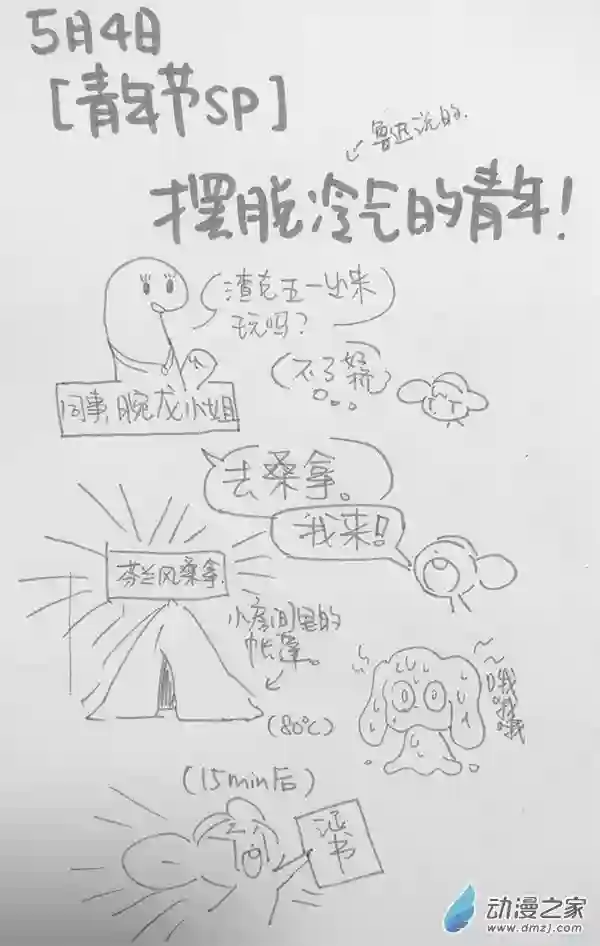 5月4日
[青年节SP]
鲁迅说的.
摆脱冷气的青年!
渣克五一出来
玩吗?
不了
同事,腕龙小姐
去桑拿。
我来!!
芬兰风桑拿
小房间里的
帐篷。
(80℃)
哦
哦
哦
(15min后)
证
书
动漫之家
www.dmzj.com